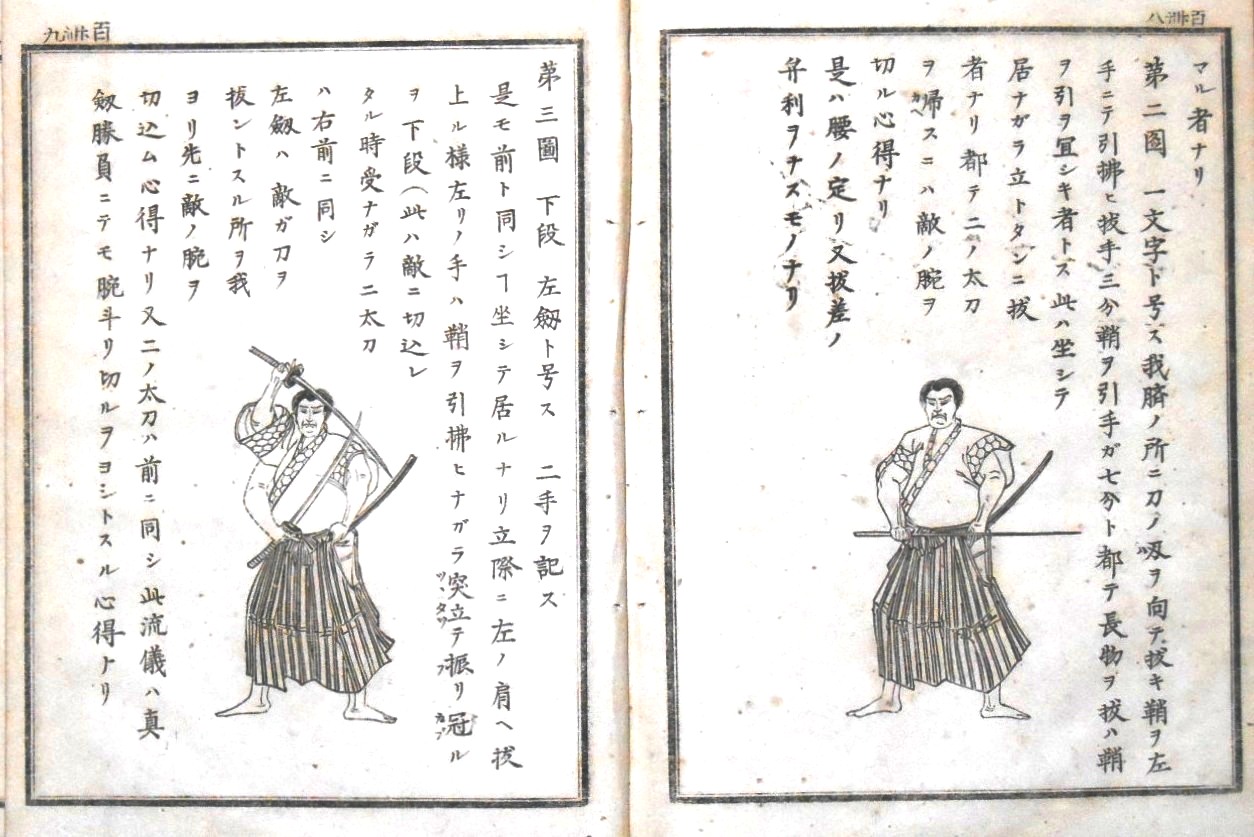 百卌八
マル者ナリ
第二圖 一文字ト号ス我臍ノ所ニ刀ノ刄ヲ向テ拔キ鞘ヲ左
手ニテ引拂ヒ拔手三分鞘ヲ引手ガ七分ト都テ長物ヲ拔ハ鞘
ヲ引ヲ冝シキ者トス此ハ坐シテ
居ナガラ立トタンニ拔
者ナリ都テ二ノ太刀
ヲ帰スニハ敵ノ腕ヲ
切ル心得ナリ
是ハ腰ノ定リ又拔差ノ
弁利ヲナスモノナリ
百卌九
第三圖 下段 左劔ト号ス 二手ヲ記ス
是モ前ト同シヿ坐シテ居ルナリ立際ニ左ノ肩ヘ拔
上ル様左リノ手ハ鞘ヲ引拂ヒナガラ突立テ振リ冠ル
ヲ下段(此ハ敵ニ切込レ
タル時受ナガラ二太刀
ハ右前ニ同シ
左劔ハ敵ガ刀ヲ
拔ントスル所ヲ我
ヨリ先ニ敵ノ腕ヲ
切込ム心得ナリ又二ノ太刀ハ前ニ同シ此流儀ハ真
劔勝負ニテモ腕斗リ切ルヲヨシトスル心得ナリ